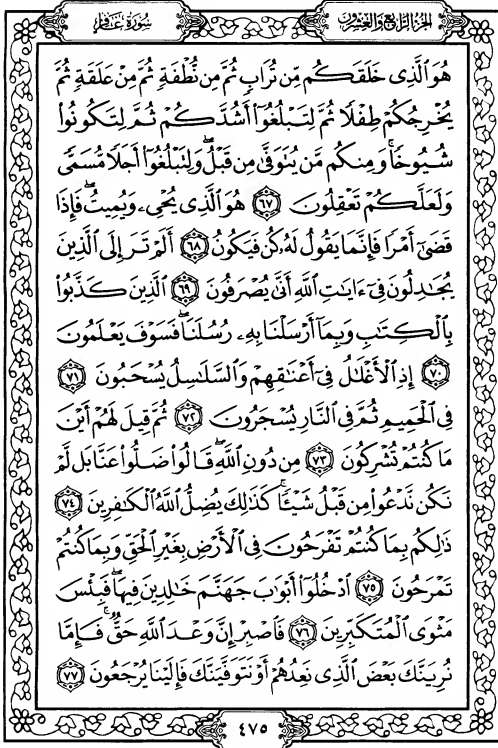 الجزء الرابع والعشرون
سورة غافر
هُوَ ٱلَّذِى خَلَقَكُم مِّن تُرَابٍ ثُمَّ مِن نُّطْفَةٍ ثُمَّ مِنْ عَلَقَةٍ ثُمَّ
يُخْرِجُكُمْ طِفْلًا ثُمَّ لِتَبْلُغُوٓا۟ أَشُدَّكُمْ ثُمَّ لِتَكُونُوا۟
شُيُوخًا ۚ وَمِنكُم مَّن يُتَوَفَّىٰ مِن قَبْلُ ۖ وَلِتَبْلُغُوٓا۟ أَجَلًا مُّسَمًّى
وَلَعَلَّكُمْ تَعْقِلُونَ ٦٧ هُوَ ٱلَّذِى يُحْىِۦ وَيُمِيتُ ۖ فَإِذَا
قَضَىٰٓ أَمْرًا فَإِنَّمَا يَقُولُ لَهُۥ كُن فَيَكُونُ ٦٨ أَلَمْ تَرَ إِلَى ٱلَّذِينَ
يُجَـٰدِلُونَ فِىٓ ءَايَـٰتِ ٱللَّهِ أَنَّىٰ يُصْرَفُونَ ٦٩ ٱلَّذِينَ كَذَّبُوا۟
بِٱلْكِتَـٰبِ وَبِمَآ أَرْسَلْنَا بِهِۦ رُسُلَنَا ۖ فَسَوْفَ يَعْلَمُونَ
٧٠ إِذِ ٱلْأَغْلَـٰلُ فِىٓ أَعْنَـٰقِهِمْ وَٱلسَّلَـٰسِلُ يُسْحَبُونَ ٧١
فِى ٱلْحَمِيمِ ثُمَّ فِى ٱلنَّارِ يُسْجَرُونَ ٧٢ ثُمَّ قِيلَ لَهُمْ أَيْنَ
مَا كُنتُمْ تُشْرِكُونَ ٧٣ مِن دُونِ ٱللَّهِ ۖ قَالُوا۟ ضَلُّوا۟ عَنَّا بَل لَّمْ
نَكُن نَّدْعُوا۟ مِن قَبْلُ شَيْـًٔا ۚ كَذَٰلِكَ يُضِلُّ ٱللَّهُ ٱلْكَـٰفِرِينَ ٧٤
ذَٰلِكُم بِمَا كُنتُمْ تَفْرَحُونَ فِى ٱلْأَرْضِ بِغَيْرِ ٱلْحَقِّ وَبِمَا كُنتُمْ
تَمْرَحُونَ ٧٥ ٱدْخُلُوٓا۟ أَبْوَٰبَ جَهَنَّمَ خَـٰلِدِينَ فِيهَا ۖ فَبِئْسَ
مَثْوَى ٱلْمُتَكَبِّرِينَ ٧٦ فَٱصْبِرْ إِنَّ وَعْدَ ٱللَّهِ حَقٌّ ۚ فَإِمَّا
نُرِيَنَّكَ بَعْضَ ٱلَّذِى نَعِدُهُمْ أَوْ نَتَوَفَّيَنَّكَ فَإِلَيْنَا يُرْجَعُونَ ٧٧
٤٧٥